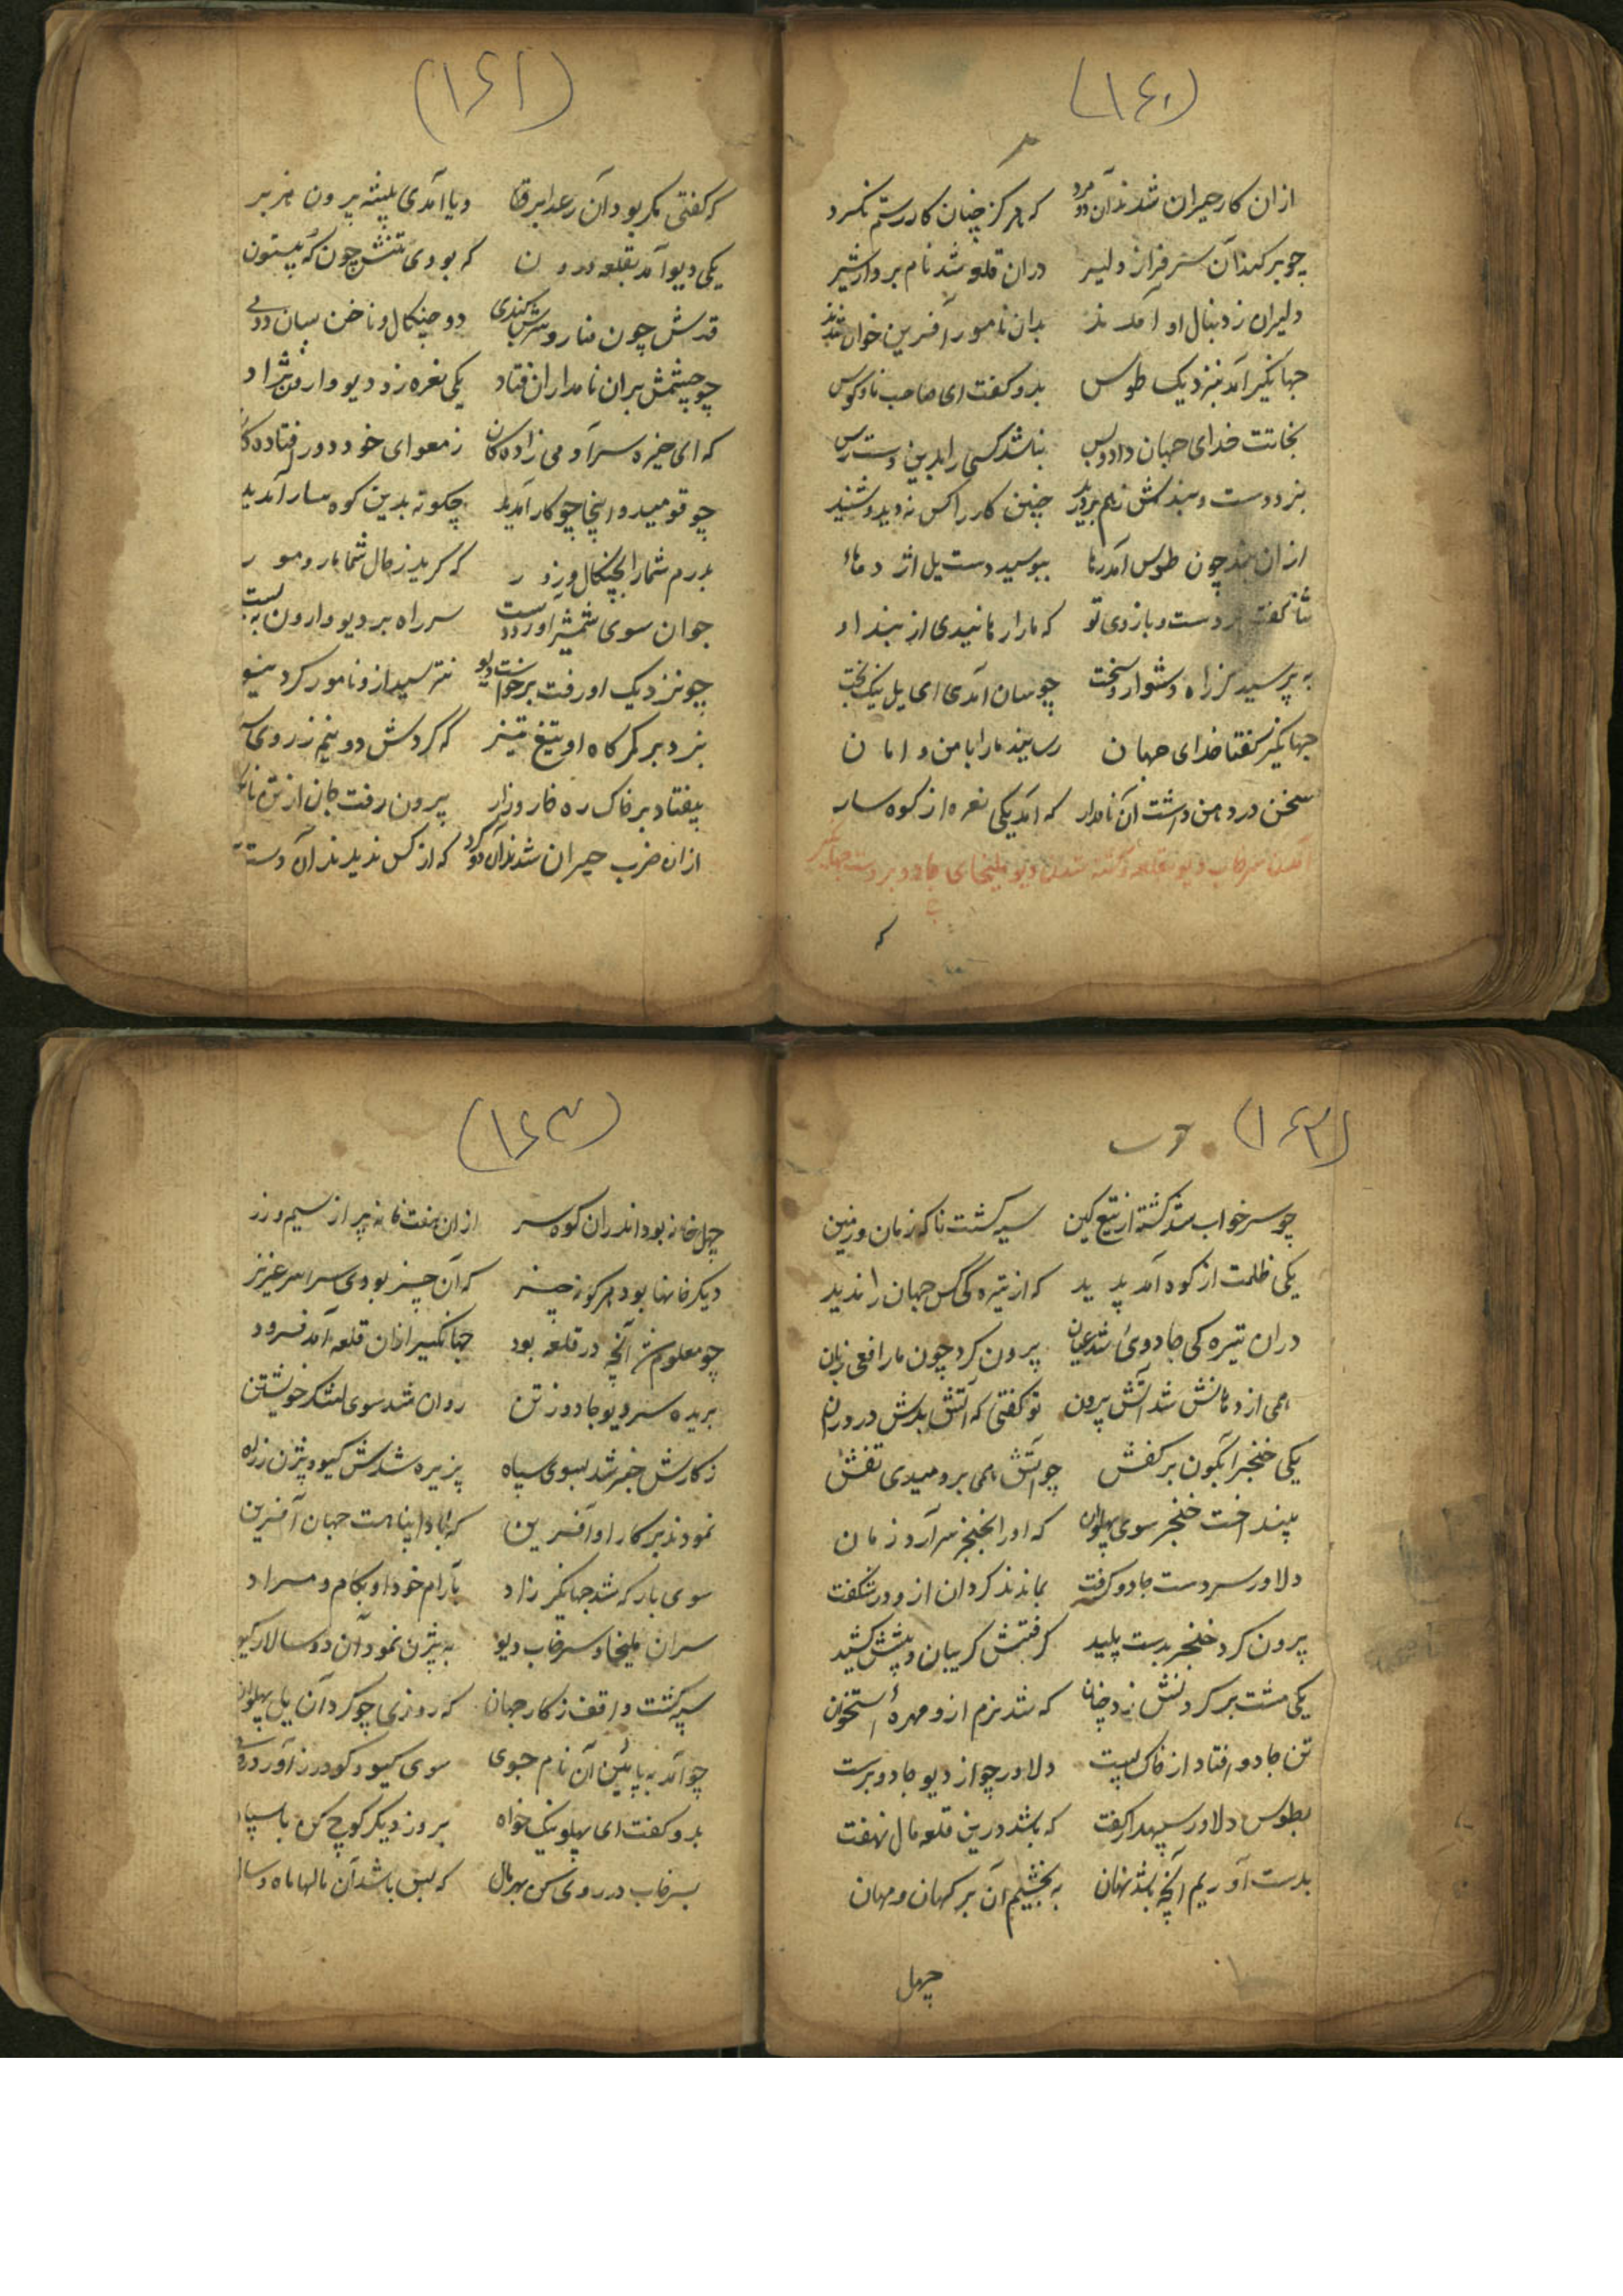 (۱۶۰)
ازان کار حیران شدند آن دو مرد که هرگز چنان کار رستم نکرد
چو برکند آن سرفراز دلیر دران قلعه شد نامبردار شیر
دلیران ز دنبال او آمدند بدان نامور آفرین خواندند
جهانگیر آمد بنزدیک طوس بدو گفت ای صاحب نای و کوس
نجاتت خدای جهان داد و بس نباشد کسی را بدین دسترس
بزد دست و بندش ز هم بردرید چنین کار را کس نه دید و شنید
ازان بند چون طوس آمد رها ببوسید دست یل اژدها
ثنا گفت بر دست و بازوی تو که ما را رهانیدی از بند او
به پرسید از راه دشوار و سخت چوسان آمدی ای یل نیک بخت
جهانگیر گفتا خدای جهان رسانید ما را با من و امان
سخن در دهن داشت آن نامدار که آمد یکی نعره از کوه سار
آمدن سرخاب دیو بقلعه و کشته شدن دیو ملیخای جادو بر دست جهانگیر
که
(۱۶۱)
که گفتی مگر بود آن رعد ابر و یا آمدی بیشه بیرون هزبر
یکی دیو آمد بقلعه درون که بودی تنش چون که بیستون
قدش چون منار و سرش گنبدی دو چنگال و ناخن بسان ددی
چو چشمش بران نامداران فتاد یکی نعره زد دیو وارون نژاد
که ای خیره سر آدمی زادگان ز معوای خود دور افتادگان
چو قومید و اینجا چو کار آمدید چگونه بدین کوه سار آمدید
بدرم شما را بچنگال و زور که گرید ز حال شما مار و مور
جوان سوی شمشیر آورد دست سر راه بر دیو وارون به بست
چو نزدیک او رفت برخواست دیو نترسید ازو نامور گرد نیو
بزد بر کمرگاه او تیغ تیز که کردش دو نیم ز روی
بیفتاد بر خاک ره خار و زار برون رفت جان از تن
ازان ضرب حیران شدند آن دو گرد که از کس ندیدند آن دست
(۱۶۲)
چو سرخاب شد کشته از تیغ کین سیه گشت ناگه زمان و زمین
یکی ظلمت از کوه آمد پدید که از تیرگی کس جهان را ندید
دران تیرگی جادوئ شد عیان برون کرد چون مار افعی زبان
همی از دهانش شد آتش برون تو گفتی که آتش بدش در درون
یکی خنجر آبگون بر کفش چو آتش همی بردمیدی تفش
بینداخت خنجر سوی پهلوان که او را بخنجر سر آرد زمان
دلاور سر دست جادو گرفت بماندند گردان ازو در شگفت
برون کرد خنجر بدست پلید گرفتش گریبان و پیشش کشید
یکی مشت بر گردنش زد چنان که شد نرم ازو مهرهٔ استخوان
تن جادو افتاد از خاک پست دلاور چو از دیو جادو برست
بطوس دلاور سپهدار گفت که باشد درین قلعه مال نهفت
بدست آوریم آنچه باشد نهان به بخشیم آن بر کهان و مهان
چهل
(۱۶۳)
چهل خانه بود اندران کوه سر ازان هفت خانه پر از سیم و زر
دیگر خانها بود هرگونه چیز که آن چیز بودی سراسر عزیز
چو معلوم شد آنچه در قلعه بود جهانگیر ازان قلعه آمد فرود
بریده سر دیو جادو ز تن روان شد سوی لشکر خویشتن
ز کارش خبر شد بسوی سپاه پزیره شدش گیو و بیژن ز راه
نمودند بر کار او آفرین که بادا پناهت جهان آفرین
سوی بارگه شد جهانگیر زاد بآرام خود او بکام و مراد
سران ملیخا و سرخاب دیو به بیژن نمود آن دو سالار گیو
سپه گشت واقف ز کار جهان که روزی چو کرد آن یل پهلوان
چو آمد به پائین آن نام جوی سوی گیو و گودرز آورد روی
بدو گفت ای پهلو نیک خواه بروز دیگر کوچ کن با سپاه
بسرخاب در روی کن بهر مال که بس باشد آن مالها ماه و سال